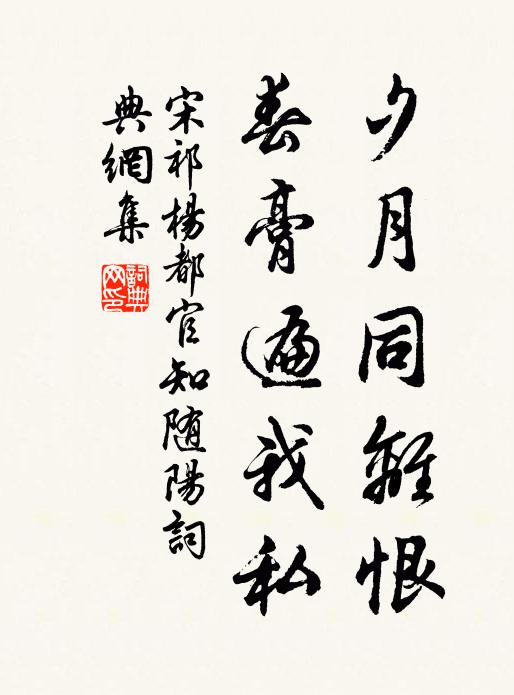 夕月同離恨
春膏遍我私
宋祁楊都官知随陽詞
典網集
詞典网印